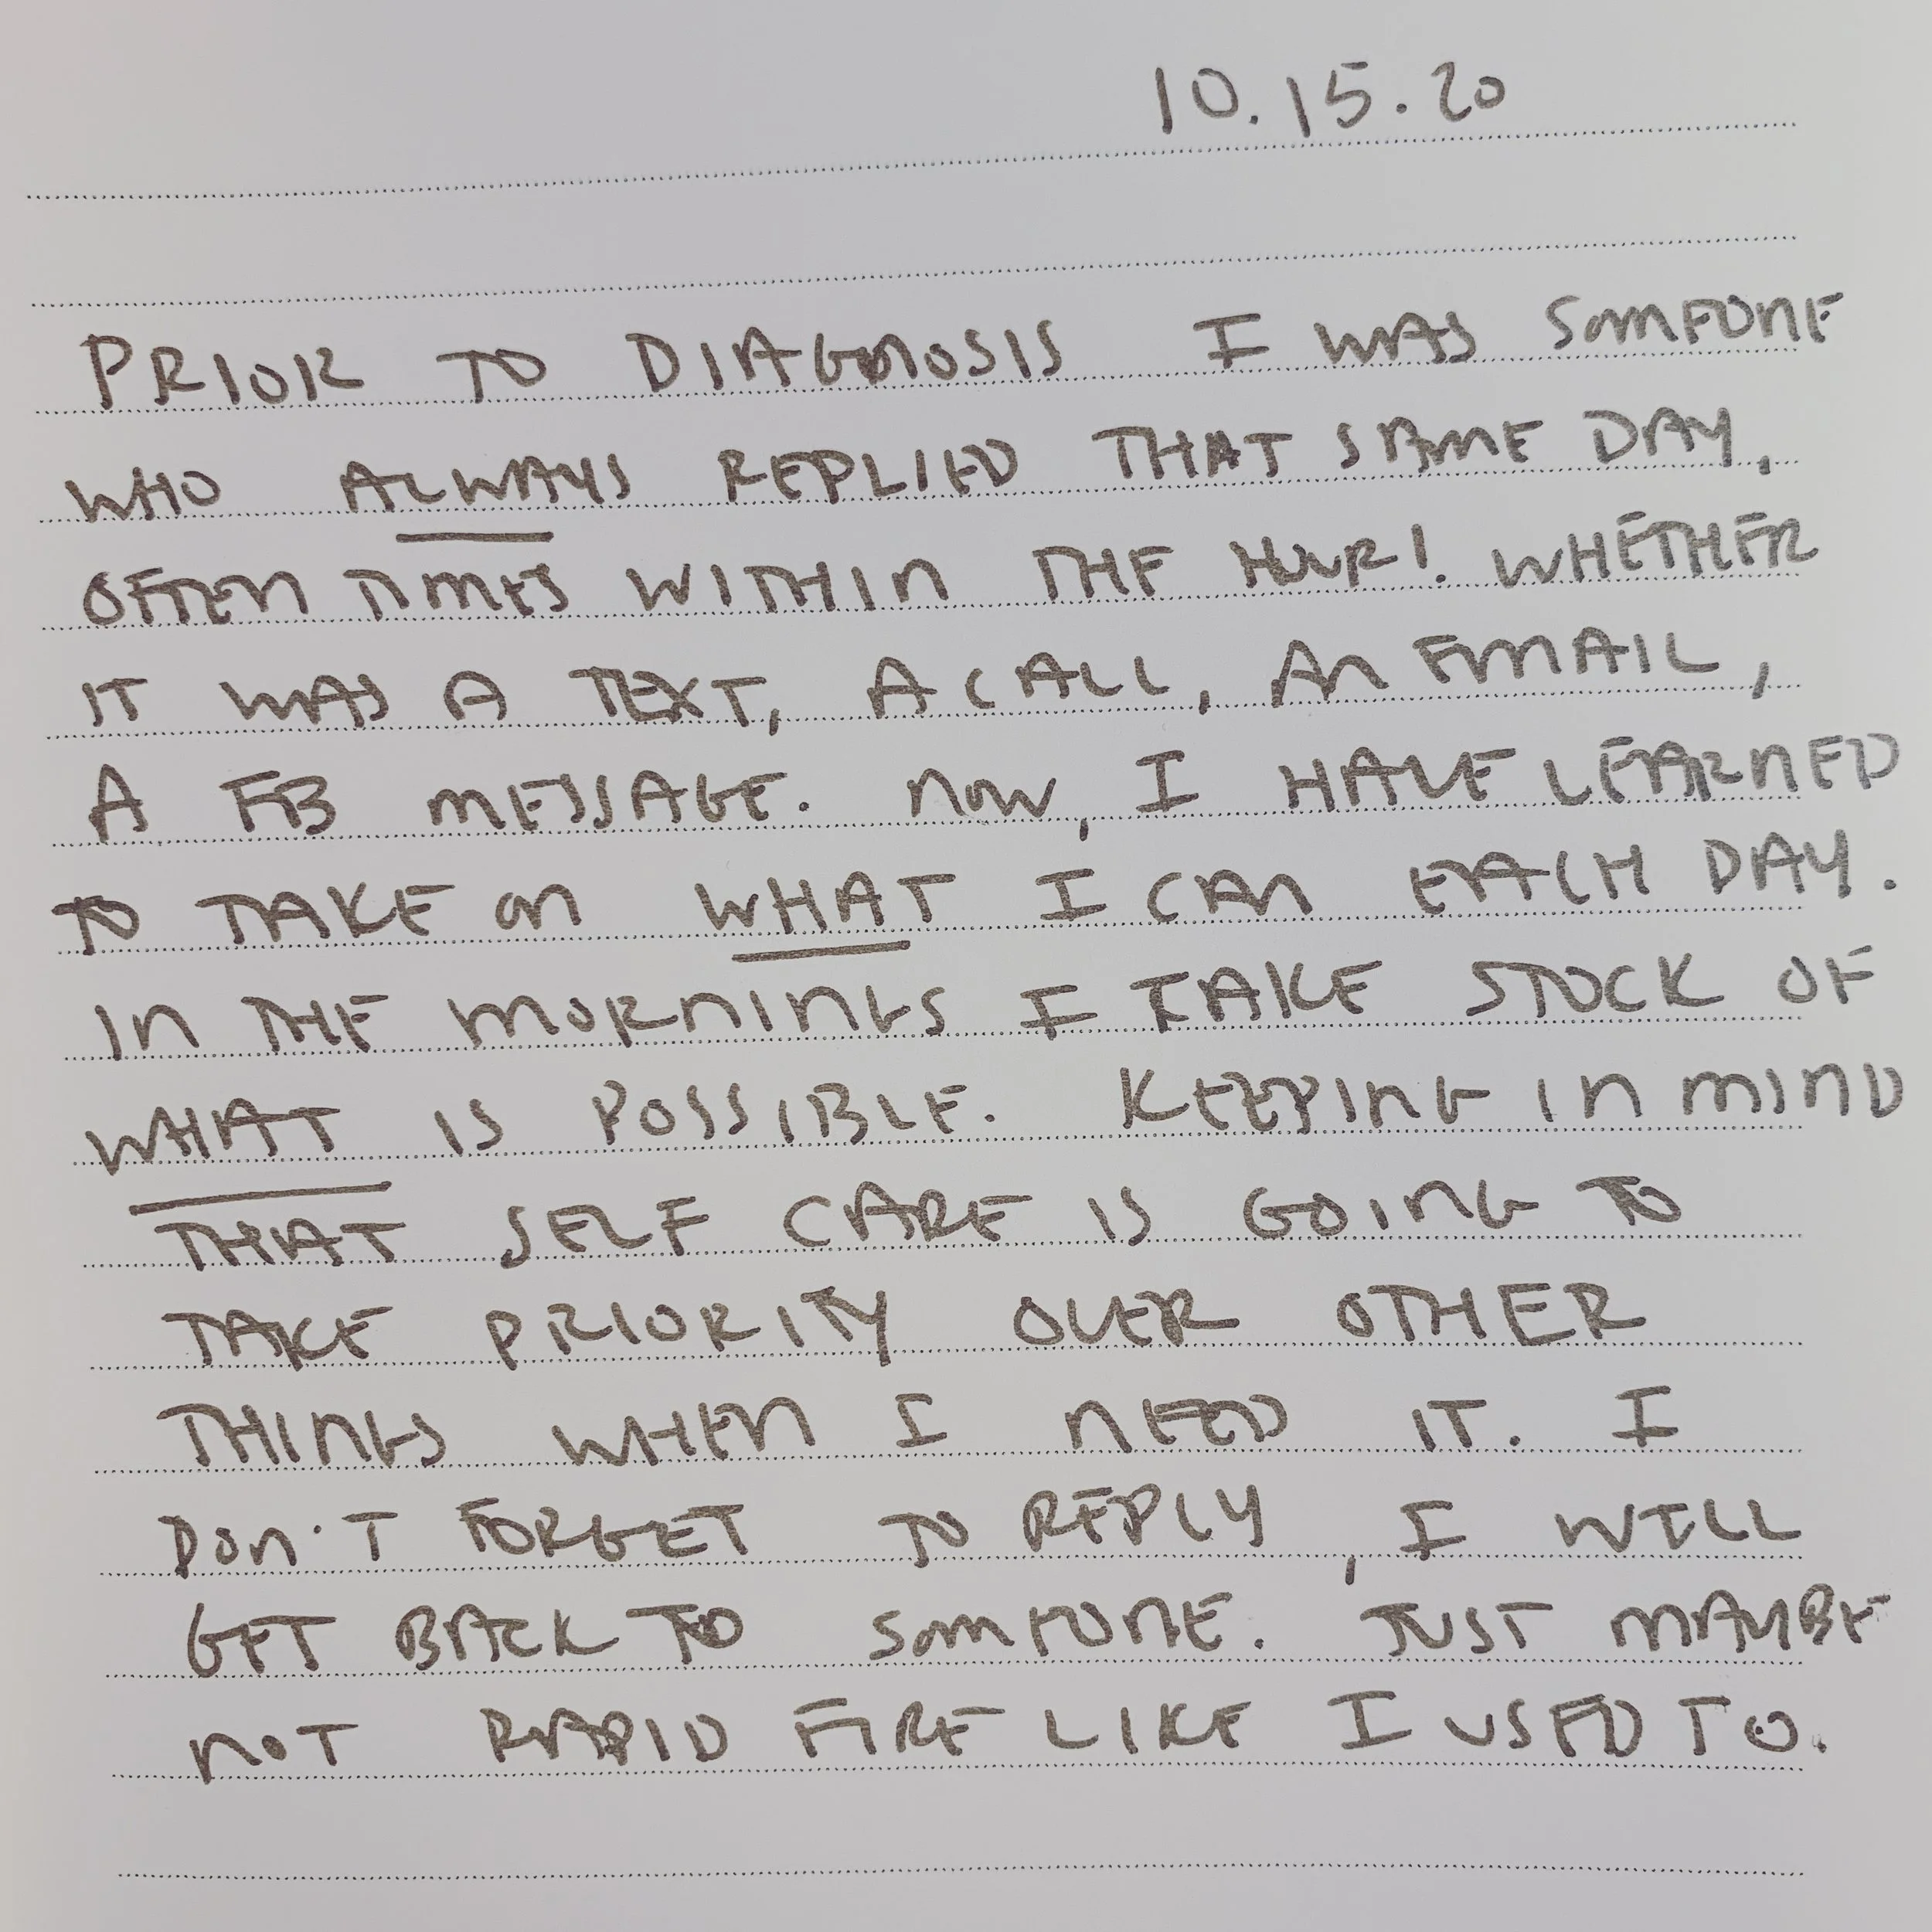 10.15.20
PRIOR TO DIAGNOSIS I WAS SOMEONE
WHO ALWAYS REPLIED THAT SAME DAY,
OFTEN TIMES WITHIN THE HOUR! WHETHER
IT WAS A TEXT, A CALL, AN EMAIL,
A FB MESSAGE. NOW, I HAVE LEARNED
TO TAKE ON WHAT I CAN EACH DAY.
IN THE MORNINGS I TAKE STOCK OF
WHAT IS POSSIBLE. KEEPING IN MIND
THAT SELF CARE IS GOING TO
TAKE PRIORITY OVER OTHER
THINGS WHEN I NEED IT. I
DON'T FORGET TO REPLY, I WILL
GET BACK TO SOMEONE. JUST MAYBE
NOT RAPID FIRE LIKE I USED TO.